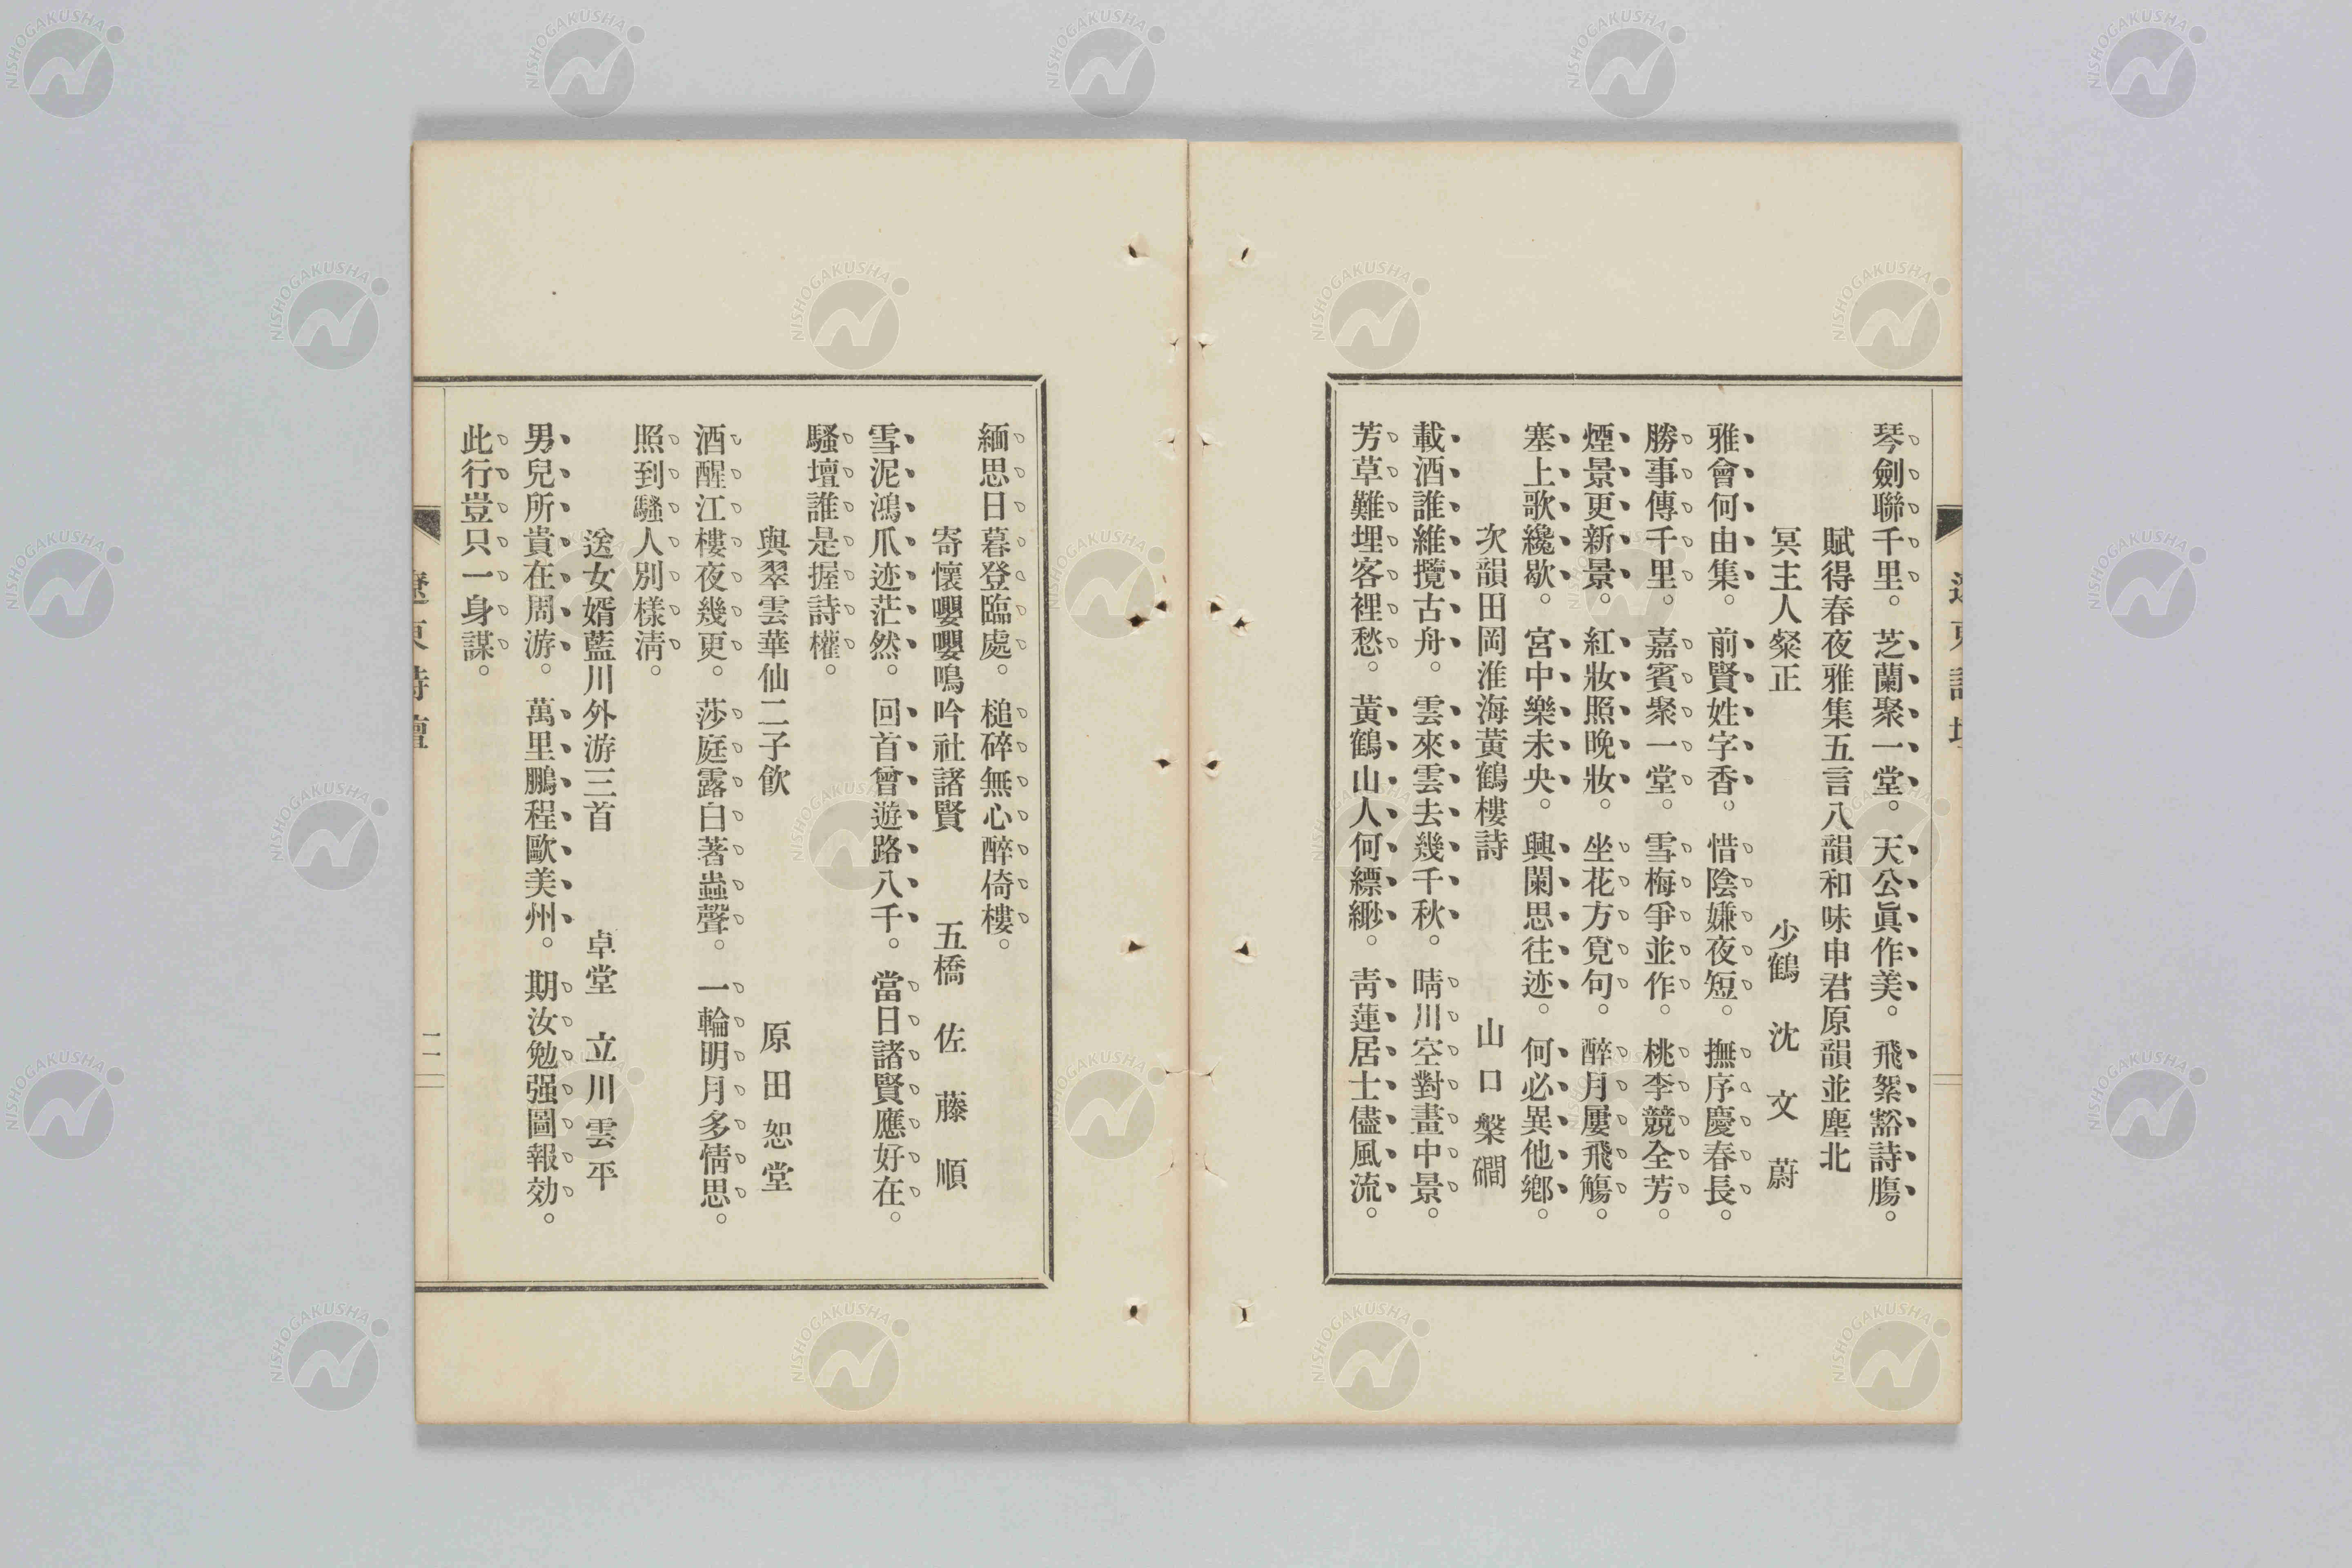 琴劍聯千里。芝蘭聚一堂。天公眞作美。飛絮豁詩膓。
賦得春夜雅集五言八韻和味申君原韻並塵北
冥主人粲正　少鶴　沈文蔚
雅會何由集。前賢姓字香。惜陰嫌夜短。撫序慶春長。
勝事傳千里。嘉賓聚一堂。雪梅爭並作。桃李競全芳。
煙景更新景。紅妝照晚妝。坐花方覓句。醉月屢飛觴。
塞上歌纔歇。宮中樂未央。興闌思往迹。何必異他鄕。
次韻田岡淮海黃鶴樓詩　山口槃礀
載酒誰維攬古舟。雲來雲去幾千秋。晴川空對畫中景。
芳草難埋客裡愁。黃鶴山人何縹緲。靑蓮居士儘風流。
緬思日暮登臨處。槌碎無心醉倚樓。
寄懷嚶嚶鳴吟社諸賢　五橋　佐藤順
雪泥鴻爪迹茫然。回首曾遊路八千。當日諸賢應好在。
騷壇誰是握詩權。
與翠雲華仙二子飮　原田恕堂
酒醒江樓夜幾更。莎庭露白著蟲聲。一輪明月多情思。
照到騷人別樣淸。
送女婿藍川外游三首　卓堂　立川雲平
男兒所貴在周游。萬里鵬程歐美州。期汝勉强圖報効。
此行豈只一身謀。
遼東詩壇
NISHOGAKUSHA